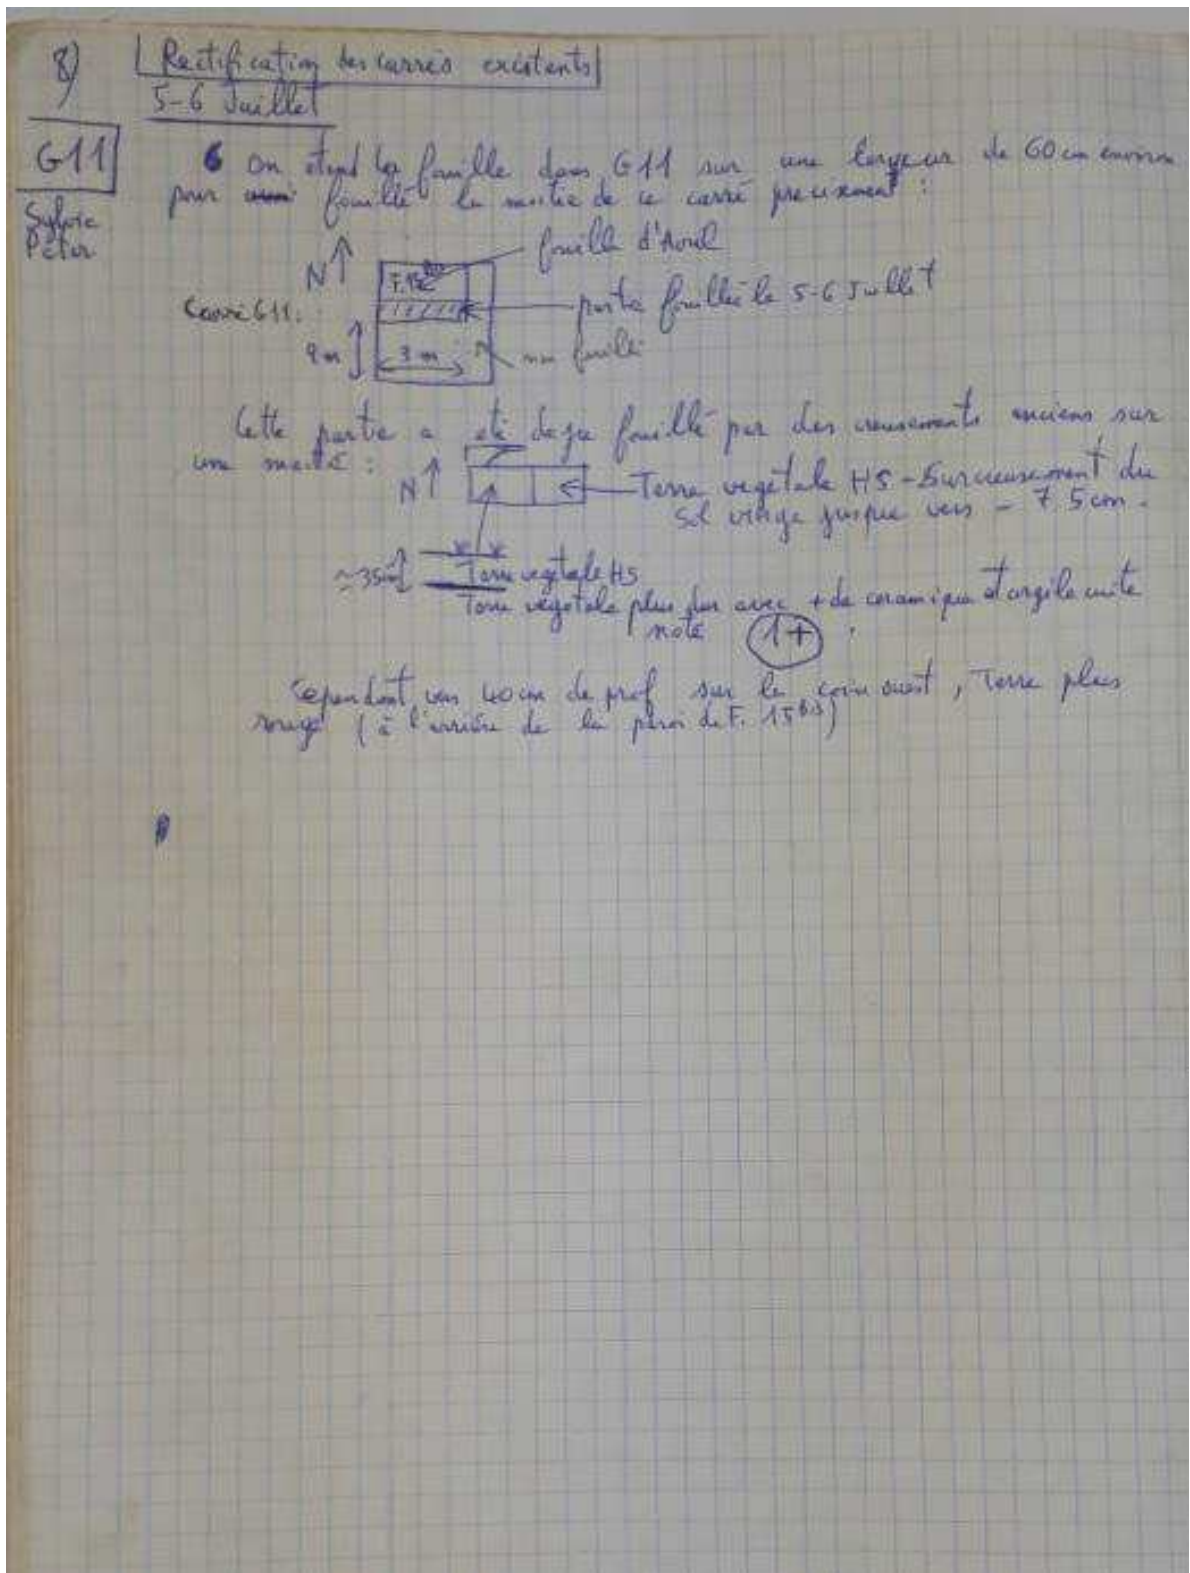 8)
Rectification des carrés existants
5-6 Juillet
G11
Sylvie
Péter
On étend la fouille dans G11 sur une largeur de 60 cm environ
pour fouillé la moitié de ce carré precisement :
N
fouille d'Avril
F.15
Carré G11.
partie fouillée le 5-6 Juillet
3 m
non fouillé
Cette partie a été deja fouillé par des creusements anciens sur
une moitié :
N
Terre végétale HS - Surcreusement du
sol vierge jusque vers - 75 cm.
~35cm
Terre végétale HS
Terre végétale plus dur avec + de ceramique et argile cuite
noté 1+
Cependant, vers 40 cm de prof sur le coin ouest, Terre plus
rouge (à l'arrière de la paroi de F. 15 bis)